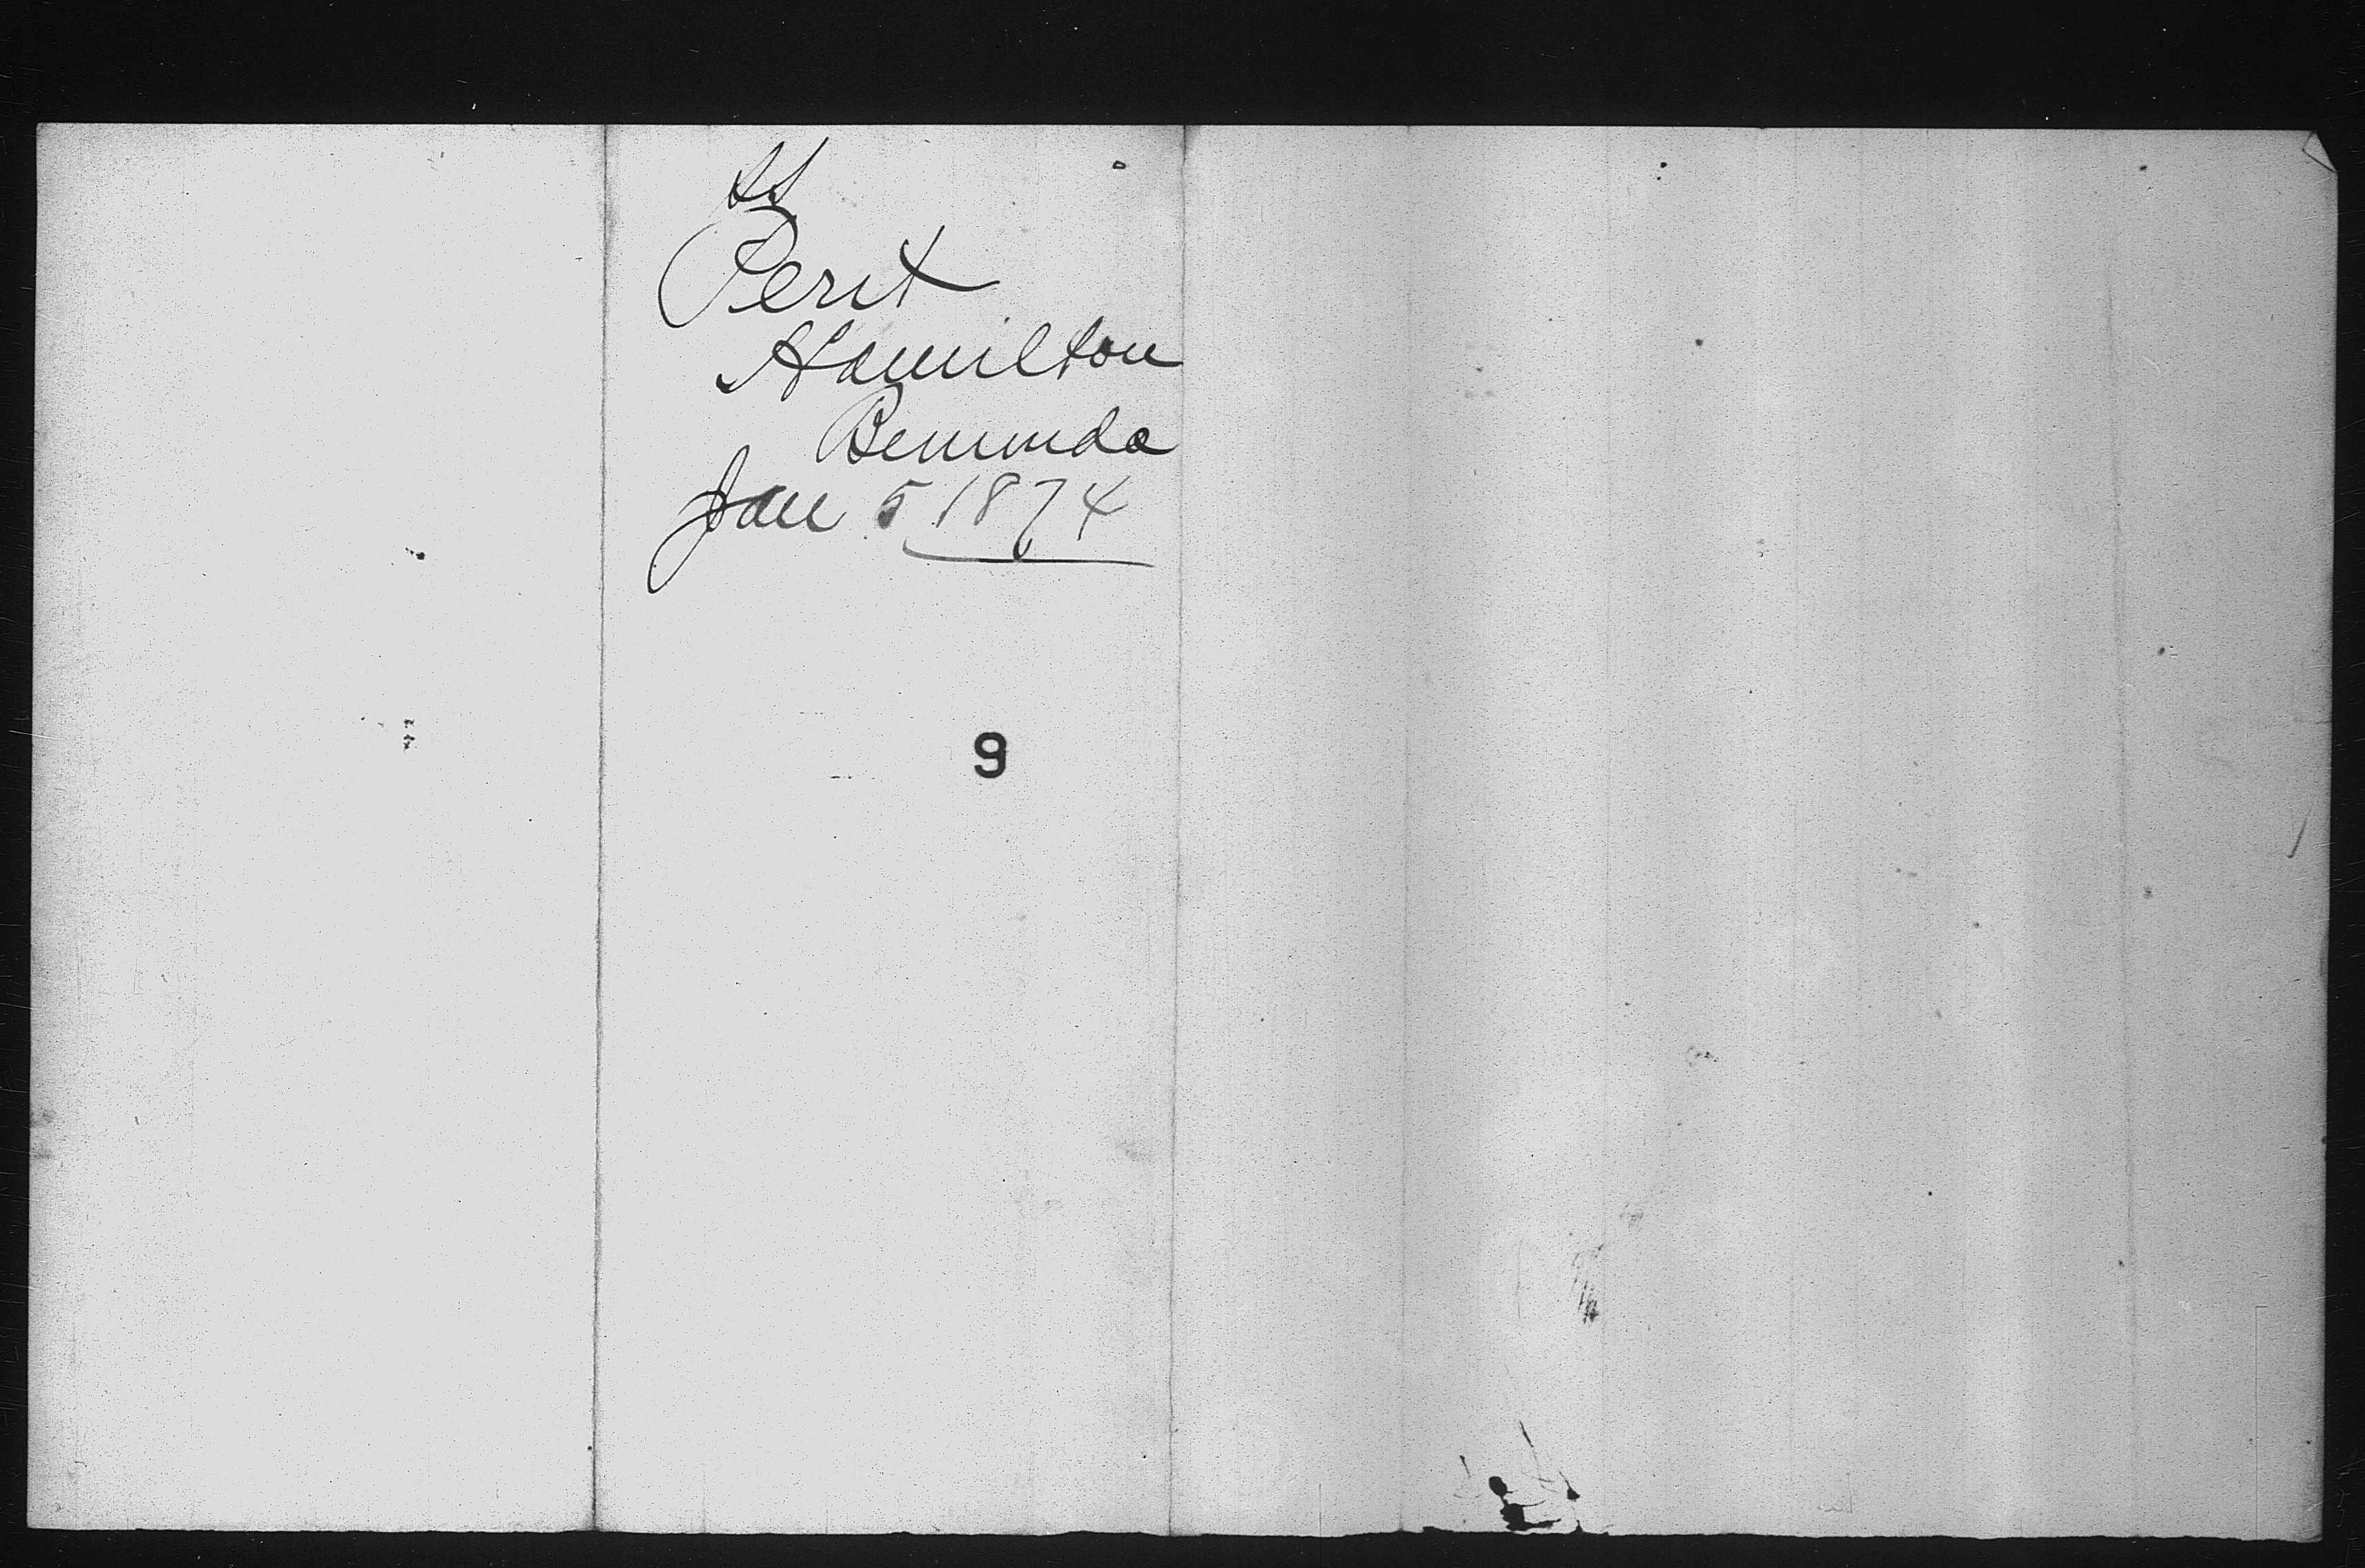 SS
Perit
Hamilton
Bermuda
Jan 5 1874
9